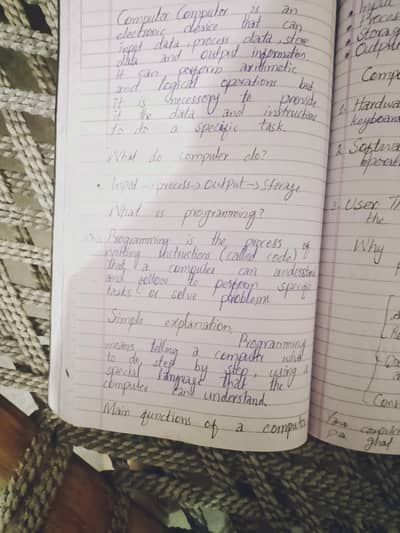 Computer Computer is an
electronic device that can
input data, process data, store
data and output information
It can perform arithmetic
and logical operations but
it is necessary to provide
it the data and instructions
to do a specific task
What do computer do?
• Input → process → output → storage
What is programming?
Programming is the process of
writing instructions (called code)
that a computer can understand
and follow to perform specific
tasks or solve problems
Simple explanation
Programming
means telling a computer what
to do, step by step, using a
special language that the
computer can understand
Main functions of a computer
• Input
• Process
• Storag
• Output
Compu
1. Hardwa
keyboar
2. Softwa
operat
3. User Th
the
Why